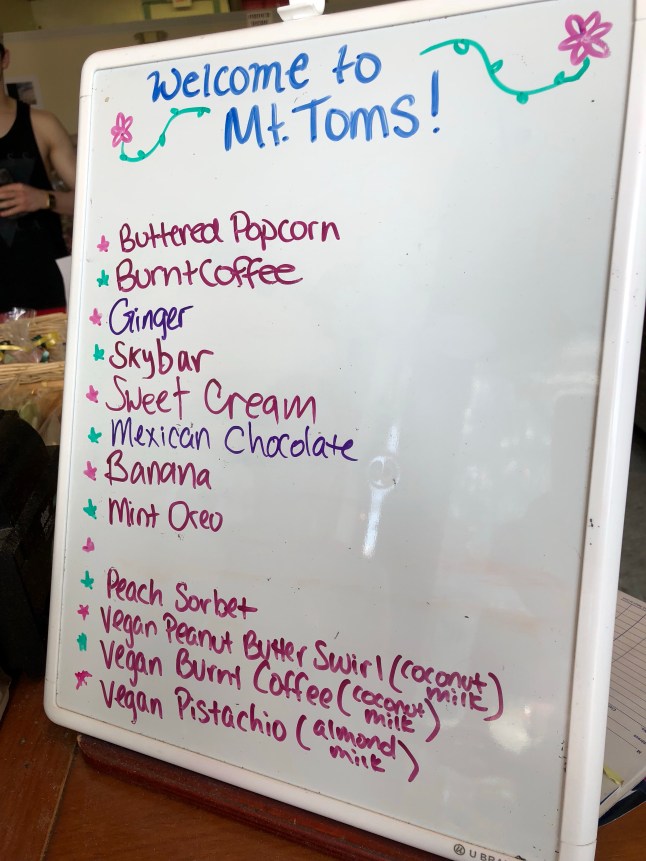 Welcome to
Mt. Toms!
Buttered Popcorn
Burnt Coffee
Ginger
Skybar
Sweet Cream
Mexican Chocolate
Banana
Mint Oreo
Peach Sorbet
Vegan Peanut Butter Swirl (coconut milk)
Vegan Burnt Coffee (coconut milk)
Vegan Pistachio (almond milk)